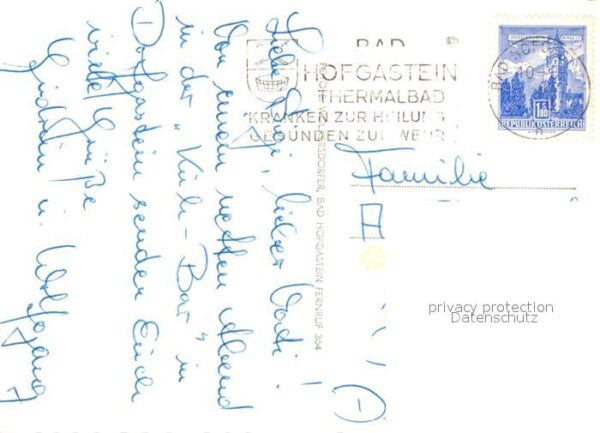 Liebe
lieber Vati!
Von einem netten Abend
in der "Kuh-Bar" in
Dorfgastein senden Euch
viele Grüße
u. Wolfgang
BAD
HOFGASTEIN
THERMALBAD
KRANKEN ZUR HEILUNG
GESUNDEN ZUR WEHR
BAD HOFG
1.80
REPUBLIK ÖSTERREICH
Familie
A
BAD HOFGASTEIN FERNRUF 364
privacy protection
Datenschutz